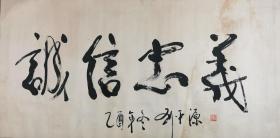 誠信忠義
乙酉年冬 刘子源